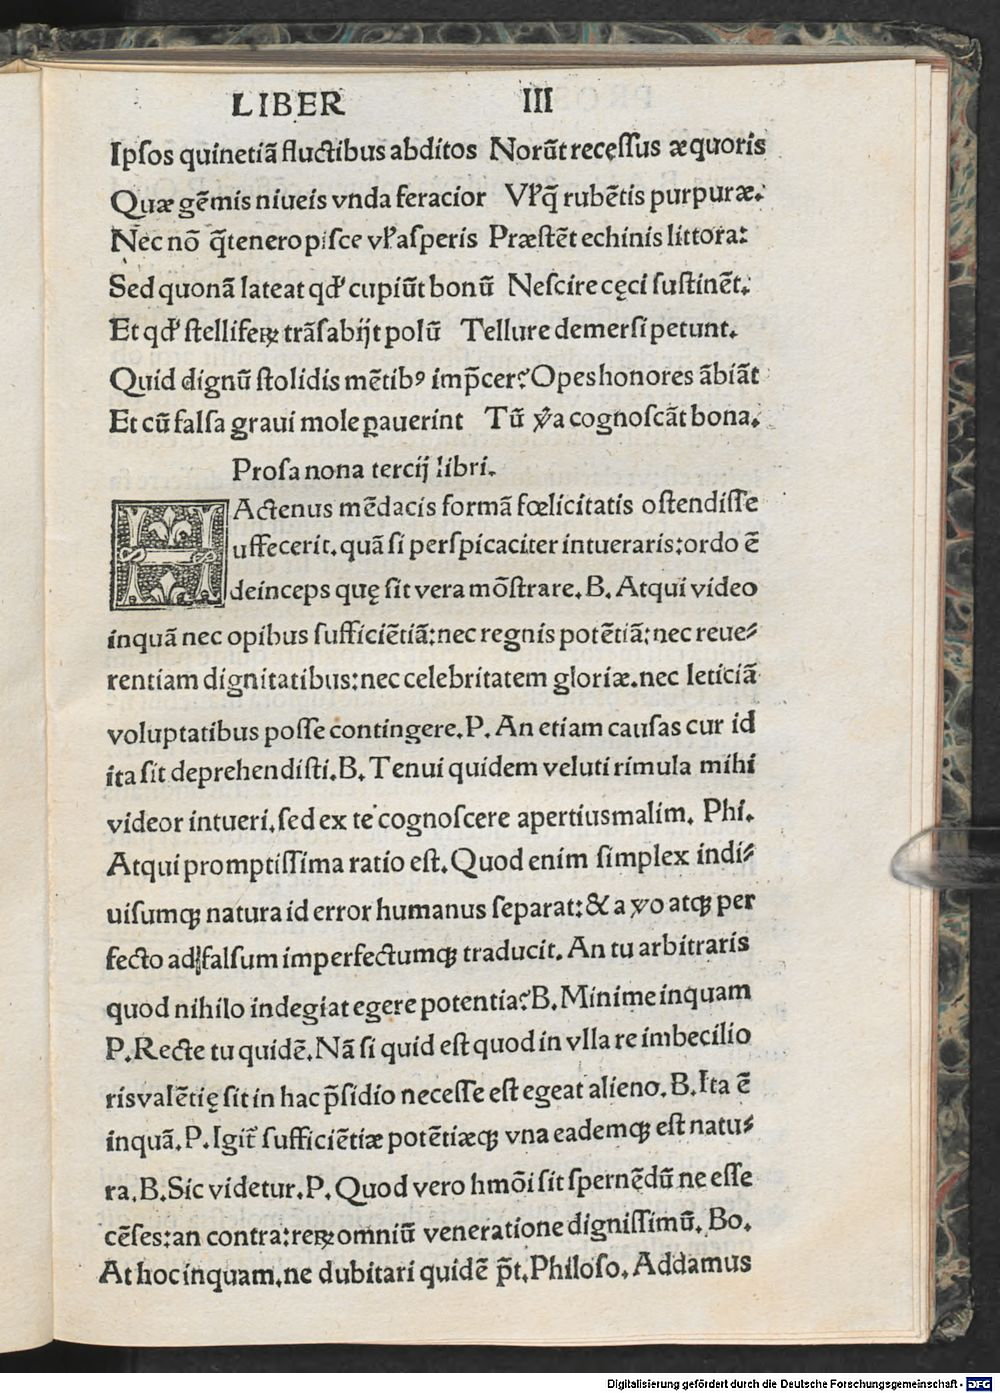 LIBER III
Ipsos quinetiā fluctibus abditos Norūt recessus æquoris
Quæ gēmis niueis vnda feracior Vꝉq̄ rubētis purpuræ.
Nec nō q̄ tenero pisce vꝉ asperis Præstēt echinis littora:
Sed quonā lateat qđ cupiūt bonū Nescire cęci sustinēt.
Et qđ stelliferꝝ trāsabijt polū Tellure demersi petunt.
Quid dignū stolidis mētibꝰ imp̄cer? Opes honores ābiāt
Et cū falsa graui mole ꝑauerint Tū v̄a cognoscāt bona.
Prosa nona tercij libri.
HActenus mēdacis formā fœlicitatis ostendisse
uffecerit. quā si perspicaciter intueraris: ordo ē
deinceps quę sit vera mōstrare. B. Atqui video
inquā nec opibus sufficiētiā: nec regnis potētiā: nec reue⸗
rentiam dignitatibus: nec celebritatem gloriæ. nec leticiā
voluptatibus posse contingere. P. An etiam causas cur id
ita sit deprehendisti. B. Tenui quidem veluti rimula mihi
videor intueri. sed ex te cognoscere apertius malim. Phi.
Atqui promptissima ratio est. Quod enim simplex indi⸗
uisumqꝫ natura id error humanus separat: & a v̄o atqꝫ per
fecto ad falsum imperfectumqꝫ traducit. An tu arbitraris
quod nihilo indegiat egere potentia? B. Minime inquam
P. Recte tu quidē. Nā si quid est quod in vlla re imbecilio
ris valētię sit in hac p̄sidio necesse est egeat alieno. B. Ita ē
inquā. P. Igit̄ sufficiētiæ potētiæqꝫ vna eademqꝫ est natu⸗
ra. B. Sic videtur. P. Quod vero hmōi sit spernēdū ne esse
cēses: an contra: rerꝝ omniū veneratione dignissimū. Bo.
At hoc inquam. ne dubitari quidē p̄t. Philoso. Addamus
Digitalisierung gefördert durch die Deutsche Forschungsgemeinschaft - DFG